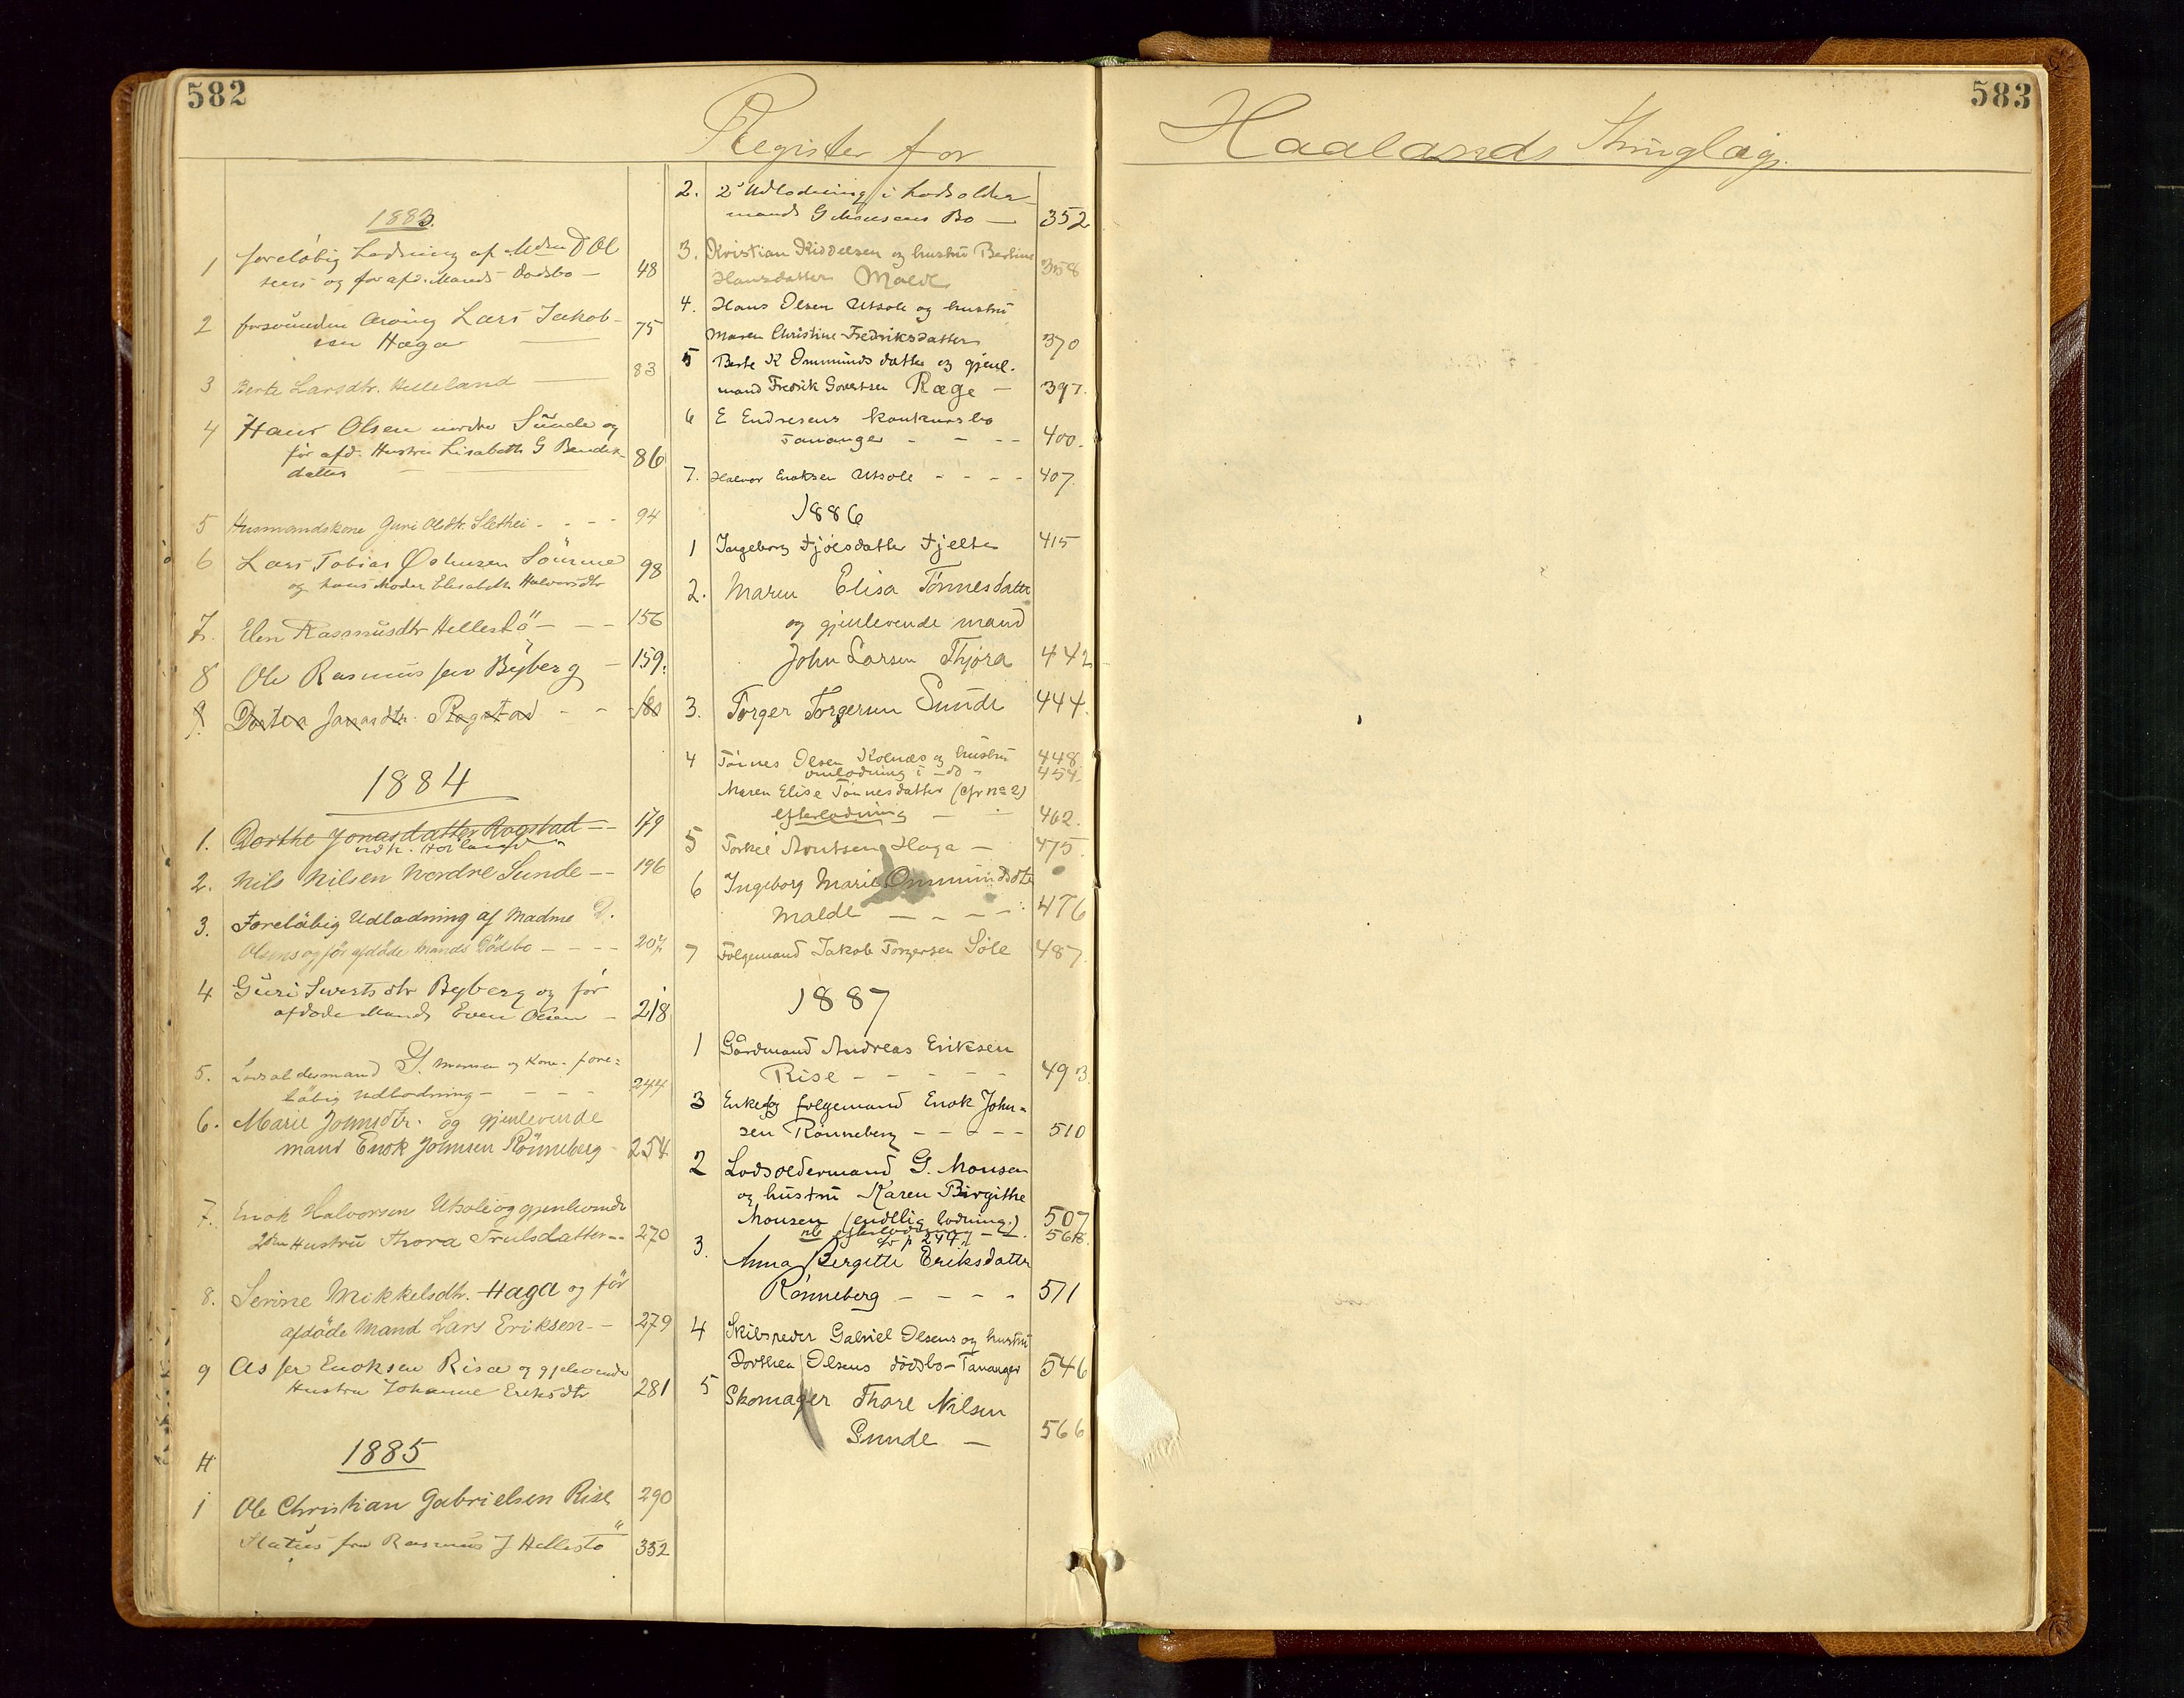 582
Register for
1883.
1 foreløbig Lodning af Mdm D Ol
sens og før afd. Mands Dødsbo — 48
2 forsvunden Arving Lars Jakob-
sen Haga — 75
3 Berte Larsdtr. Helleland — 83
4 Hans Olsen nordre Sunde og
før afd. Hustru Lisabeth G Bendik-
datter — 86
5 Husmandskone Guri Olsdtr. Slethei - - - 94
6 Lars Tobias Østensen Sømme
og hans Moder Elisabeth Halvorsdtr 98
7. Elen Rasmusdtr Hellestö - - - 156
8 Ole Rasmussen Byberg — 159.
9. Dortea Jonasdtr. Rogstad - - 160
1884
1. Dorthe Jonasdatter Rogstad - - 179
2. Nils Nilsen Nordre Sunde - - 196
3. Foreløbig Udlodning af Madme D.
Olsens og før afdøde Mands Dødsbo - - - - 207.
4 Guri Sivertsdtr Byberg og før
afdøde Mands Even Olsen — 218
5. Lodsoldermand G. Monsen og Kone. fore=
løbig Udlodning - - - - 244
6. Marie Johnsdtr. og gjenlevende
mand Enok Johnsen Rönneberg - 254
7. Enok Halvorsen Utsole og gjenlevende
2den Hustru Thora Trulsdatter - - 270
8. Serine Mikkelsdtr. Haga og før
afdøde Mand Lars Eriksen - - 279
9 Asser Enoksen Risa og gjenlevende
Hustru Johanne Eriksdtr 281
1885
1 Ole Christian Gabrielsen Rise 290
Status for Rasmus J Hellestö 332
2. 2' Udlodning i Lodsolder-
mands G Monsens Bo — 352
3. Kristian Kiddelsen og hustru Bertine
Hansdatter Malde 358
4. Hans Olsen Utsole og hustru
Maren Christine Fredriksdatter 370
5 Berte K Ommundsdatter og gjenl.
mand Fredrik Govertsen Ræge — 397.
6 E Endresens konkursbo
Tananger - - - - 400.
7. Halvor Enoksen Utsole - - - - 407.
1886
1 Ingeborg Fjølsdatter Tjelta 415
2. Maren Elisa Tønnesdatter
og gjenlevende mand
John Larsen Thjora 442
3. Torger Torgersen Sunde 444.
4 Tönnes Olsen Kolnæs og hustru 448.
omlodning i - do - 454.
Maren Elise Tönnesdatter (cfr no 2)
efterlodning — - 462.
5 Torkel Aontsen Haga — 475.
6 Ingeborg Marie Ommundsdtr
Malde — - - - 476
7 Følgemand Jakob Torgersen Søle 487.
1887
1 Gårdmand Andreas Eriksen
Rise - - - - - 493.
3 Enke og følgemand Enok John=
sen Rønneberg - - - - - 510
2 Lodsoldermand G. Monsen
og hustru Karen Birgithe
Monsen (endlig lodning.) 507
efterlodning cfr p 244 568.
3. Anna Bergitte Eriksdatter
Rønneberg - - - - 511
4 Skibsreder Gabriel Olsens og hustru
Dorthea Olsens dödsbo - Tananger 546
5 Skomager Thore Nilsen
Sunde — 566
583
Haalands Thinglag.